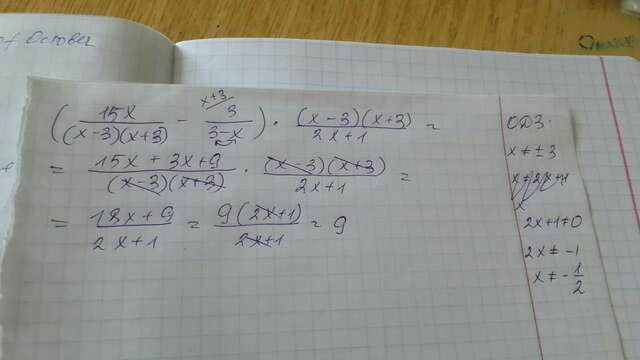 of October
(15x/((x-3)(x+3)) - 3/(3-x)) · (x-3)(x+3)/(2x+1) =
x+3
= (15x + 3x+9)/((x-3)(x+3)) · (x-3)(x+3)/(2x+1) =
= (18x+9)/(2x+1) = 9(2x+1)/(2x+1) = 9
ОДЗ:
x ≠ ±3
x
2x+1≠0
2x ≠ -1
x ≠ -1/2